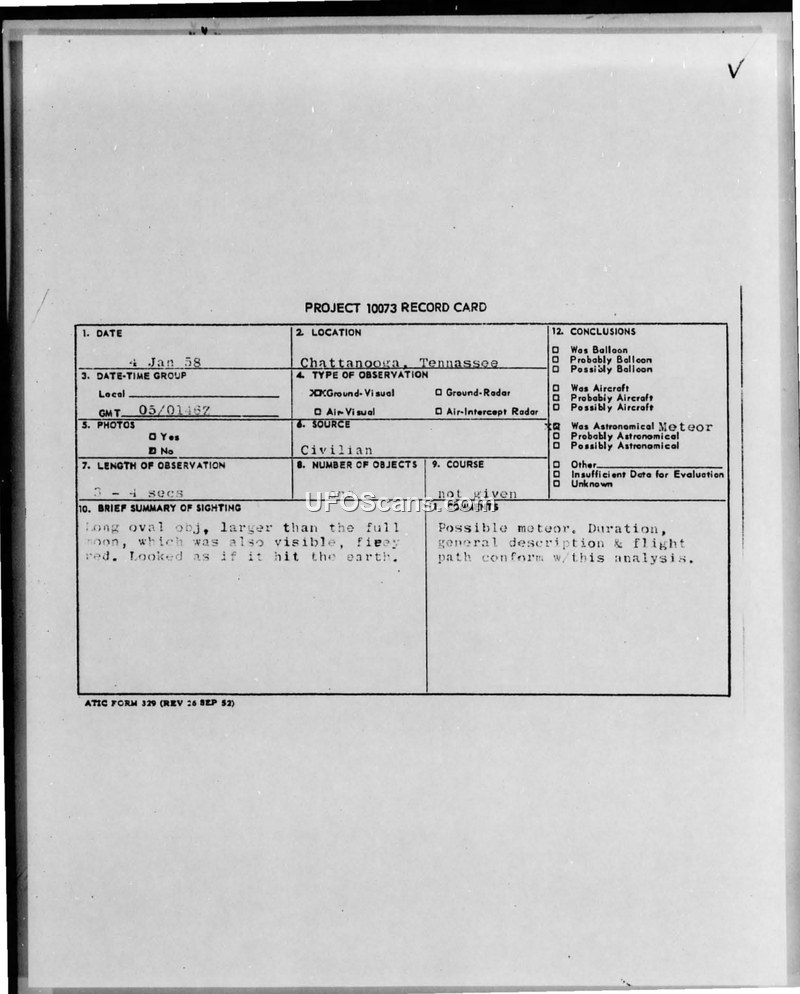 PROJECT 10073 RECORD CARD
1. DATE
4 Jan 58
2. LOCATION
Chattanooga, Tennassee
12. CONCLUSIONS
□ Was Balloon
□ Probably Balloon
□ Possibly Balloon
□ Was Aircraft
□ Probably Aircraft
□ Possibly Aircraft
Was Astronomical Meteor
□ Probably Astronomical
□ Possibly Astronomical
□ Other
□ Insufficient Data for Evaluation
□ Unknown
3. DATE-TIME GROUP
Local
GMT 05/0146Z
4. TYPE OF OBSERVATION
XXGround-Visual □ Ground-Radar
□ Air-Visual □ Air-Intercept Radar
5. PHOTOS
□ Yes
No
6. SOURCE
Civilian
7. LENGTH OF OBSERVATION
3 - 4 secs
8. NUMBER OF OBJECTS
9. COURSE
not given
10. BRIEF SUMMARY OF SIGHTING
Long oval obj, larger than the full
moon, which was also visible, fieey
red. Looked as if it hit the earth.
11. COMMENTS
Possible meteor. Duration,
general description & flight
path conform w/this analysis.
ATIC FORM 329 (REV 26 SEP 52)
UFOScans.com